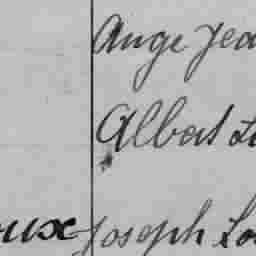 Ange Jea
Albert Lo
oux Joseph Lo